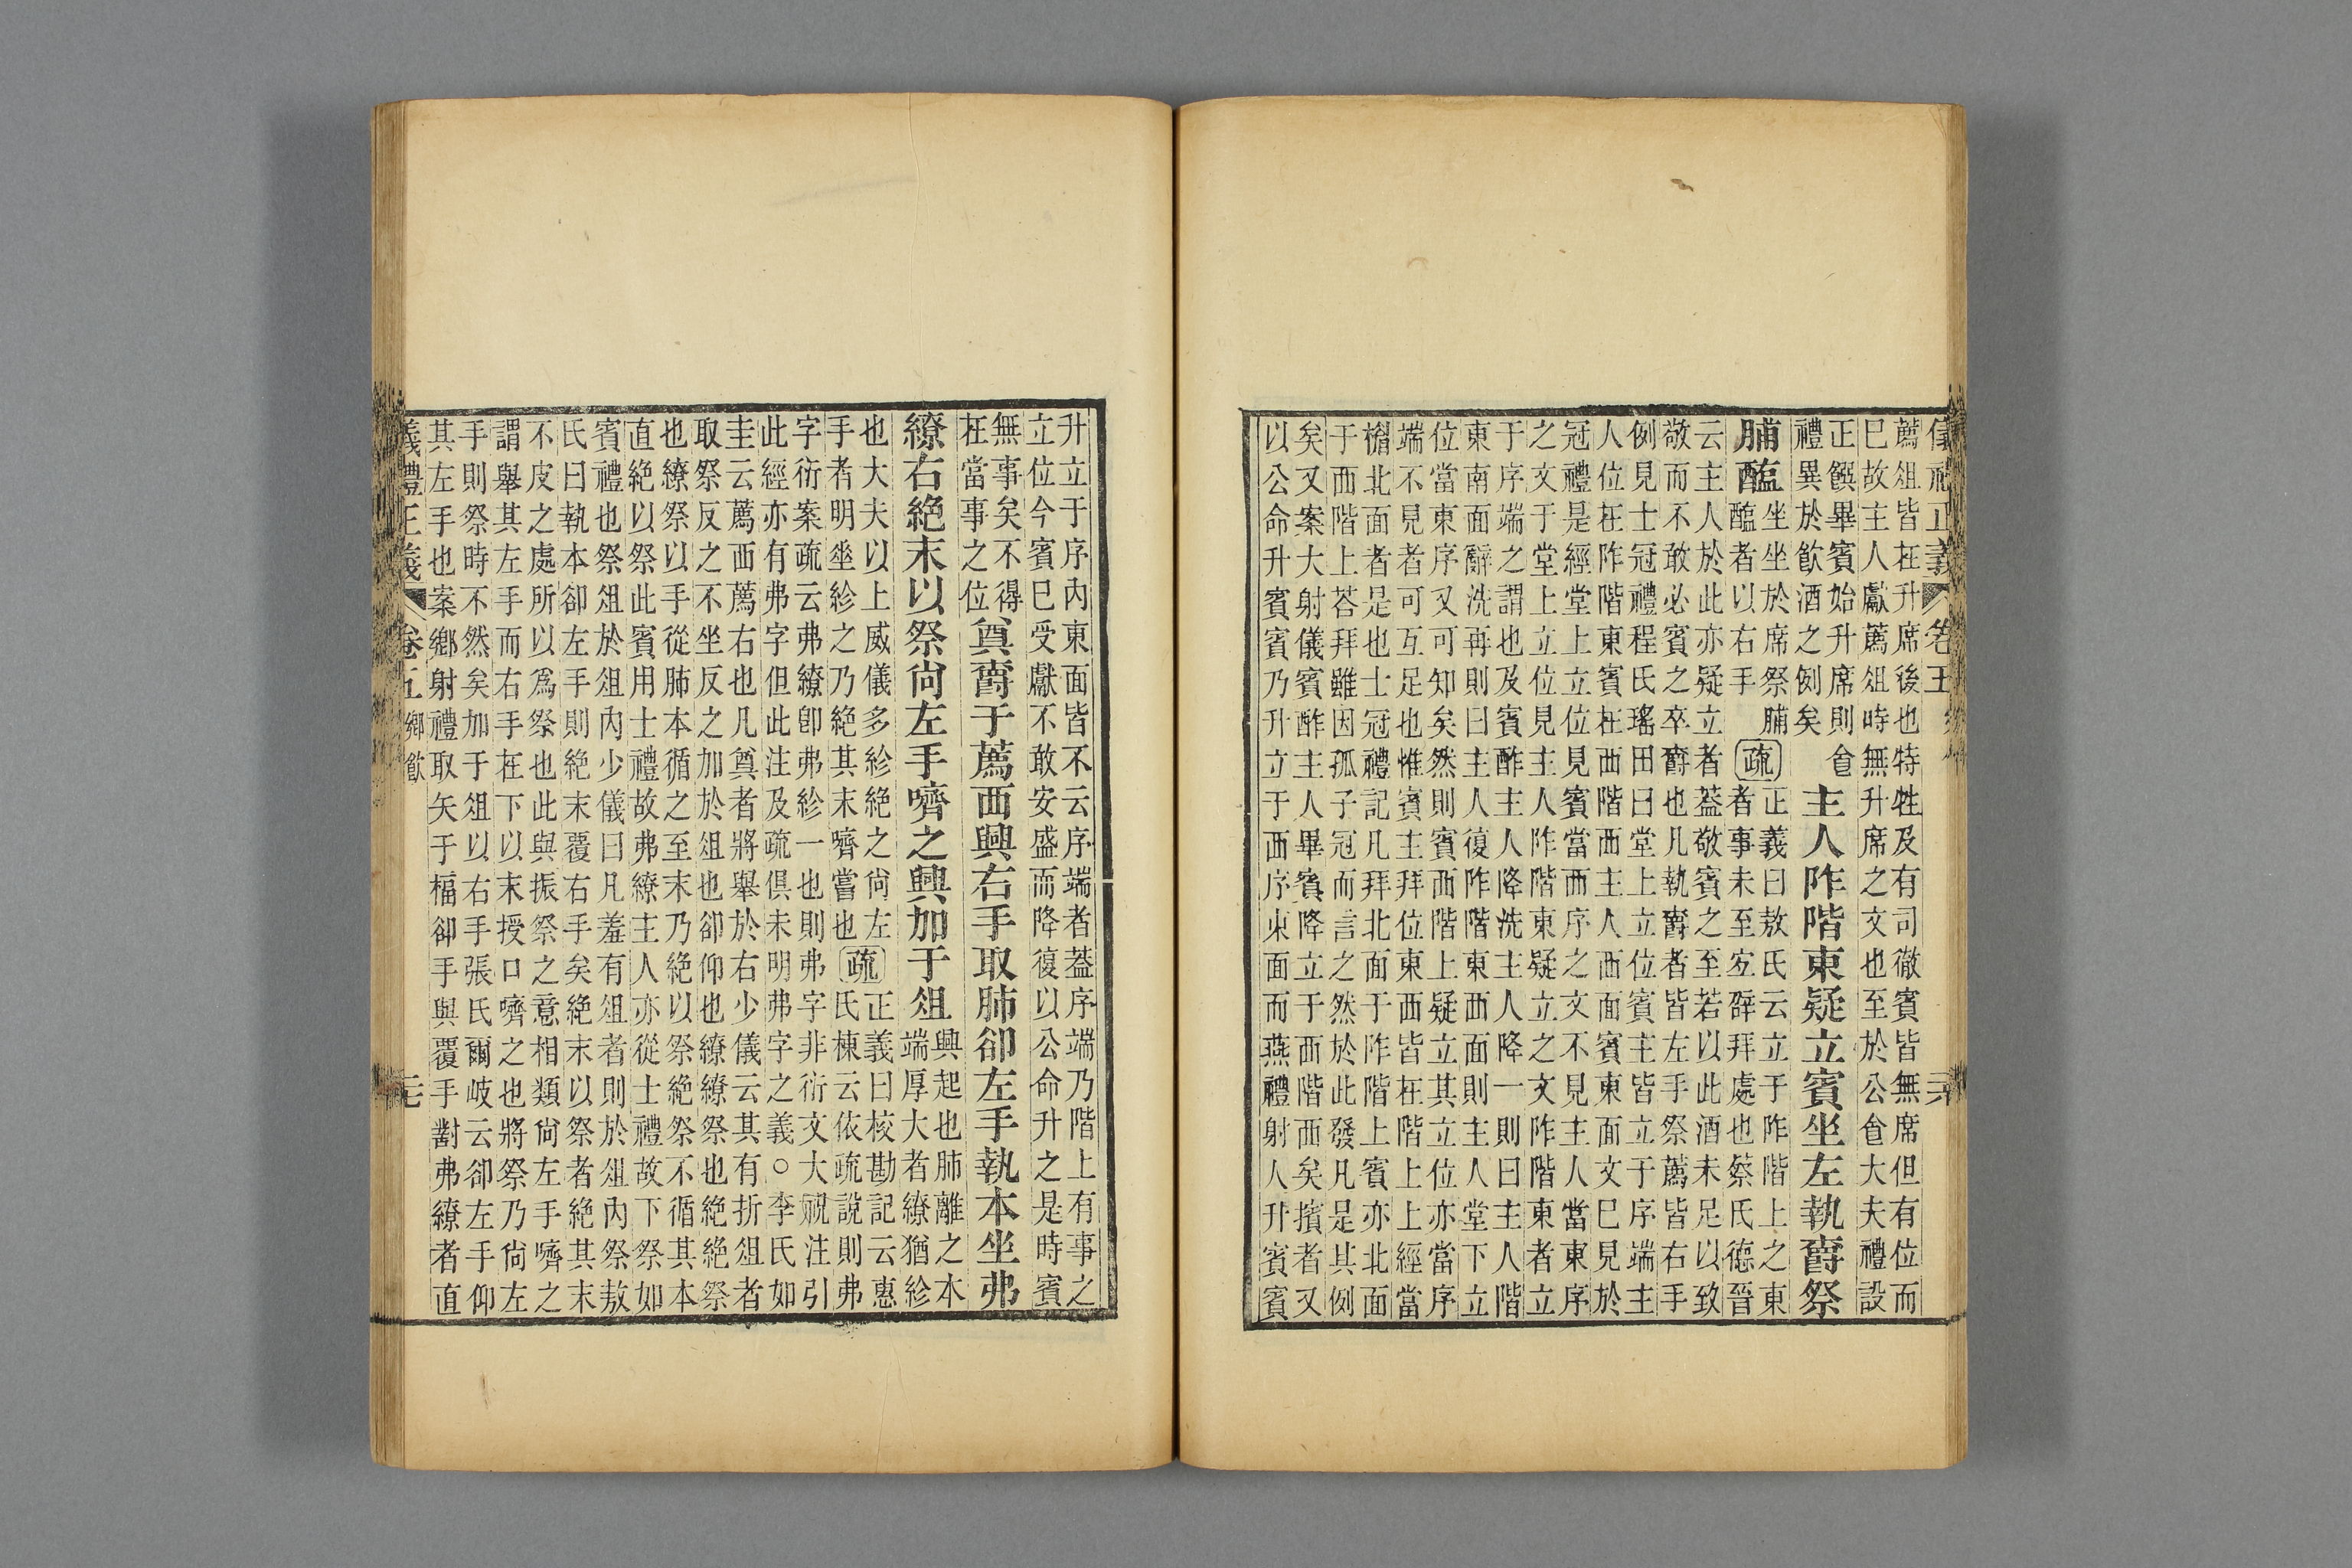 儀禮正義 卷五
薦俎皆在升席後也特牲及有司徹賓皆無席但有位而
巳故主人獻薦俎時無升席之文也至於公㑹大夫禮設
正饌畢賓始升席則㑹
禮異於飮酒之例矣
主人阼階東疑立賓坐左執爵祭
脯醢
坐坐於席祭脯
醢者以右手
疏
正義曰敖氏云立于阼階上之東
者事未至宐辟拜處也蔡氏德晉
云主人於此亦疑立者葢敬賓之至若以此酒未足以致
敬而不敢必賓之卒爵也凡執爵者皆左手祭薦皆右手
例見士冠禮程氏瑤田曰堂上立位賓主皆立于序端主
人位在阼階東賓在西階西主人西面賓東面文巳見於
冠禮是經堂上立位見賓當西序之文不見主人當東序
之文于堂上立位見主人阼階東疑立之文阼階東者立
于序端之謂也及賓酢主人降洗主人降一則曰主人階
東南面辭洗再則曰主人復阼階東西面則主人堂下立
位當東序又可知矣然則賓西階上疑立其立位亦當序
端不見者可互足也惟賓主拜位東西皆在階上上經當
楣北面者是也士冠禮記凡拜北面于阼階上賓亦北面
于西階上荅拜雖因孤子冠而言之然於此發凡是其例
矣又案大射儀賓酢主人畢賓降立于西階西矣擯者又
以公命升賓賓乃升立于西序東面而燕禮射人升賓賓
升立于序內東面皆不云序端者葢序端乃階上有事之
立位今賓巳受獻不敢安盛而降復以公命升之是時賓
無事矣不得
在當事之位
奠爵于薦西興右手取肺卻左手執本坐弗
繚右絕末以祭尙左手嚌之興加于俎
興起也肺離之本
端厚大者繚猶紾
也大夫以上威儀多紾絕之尙左
手者明坐紾之乃絕其末嚌嘗也
疏
正義曰校勘記云惠
氏棟云依疏說則弗
字衍案疏云弗繚卽弗紾一也則弗字非衍文大祝注引
此經亦有弗字但此注及疏俱未明弗字之義○李氏如
圭云薦西薦右也凡奠者將舉於右少儀云其有折俎者
取祭反之不坐反之加於俎也卻仰也繚繚祭也絕絕祭
也繚祭以手從肺本循之至末乃絕以祭絕祭不循其本
直絕以祭此賓用士禮故弗繚主人亦從士禮故下祭如
賓禮也祭俎於俎內少儀曰凡羞有俎者則於俎內祭敖
氏曰執本卻左手則絕末覆右手矣絕末以祭者絕其末
不皮之處所以爲祭也此與振祭之意相類尙左手嚌之
謂舉其左手而右手在下以末授口嚌之也將祭乃尙左
手則祭時不然矣加于俎以右手張氏爾岐云卻左手仰
其左手也案鄉射禮取矢于楅卻手與覆手對弗繚者直
儀禮正義 卷五 鄉飮